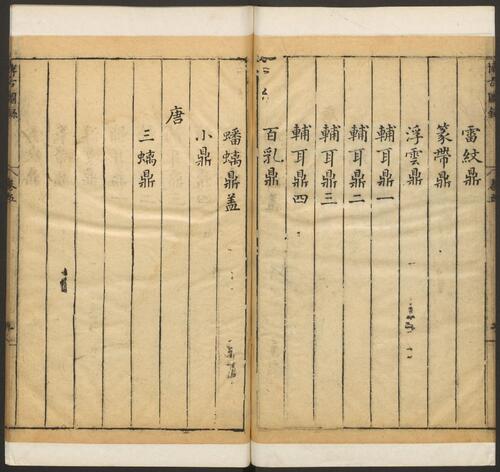 雷紋鼎
篆帶鼎
浮雲鼎
輔耳鼎一
輔耳鼎二
輔耳鼎三
輔耳鼎四
百乳鼎
蟠螭鼎蓋
小鼎
唐
三螭鼎